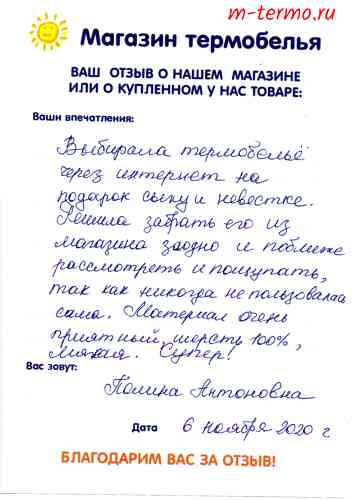 m-termo.ru
Магазин термобелья
ВАШ ОТЗЫВ О НАШЕМ МАГАЗИНЕ
ИЛИ О КУПЛЕННОМ У НАС ТОВАРЕ:
Ваши впечатления:
Выбирала термобельё
через интернет на
подарок сыну и невестке.
Решила забрать его из
магазина заодно и поближе
рассмотреть и пощупать,
так как никогда не пользовалась
сама. Материал очень
приятный, шерсть 100%,
мягкая. Супер!
Вас зовут:
Полина Антоновна
Дата 6 ноября 2020 г
БЛАГОДАРИМ ВАС ЗА ОТЗЫВ!